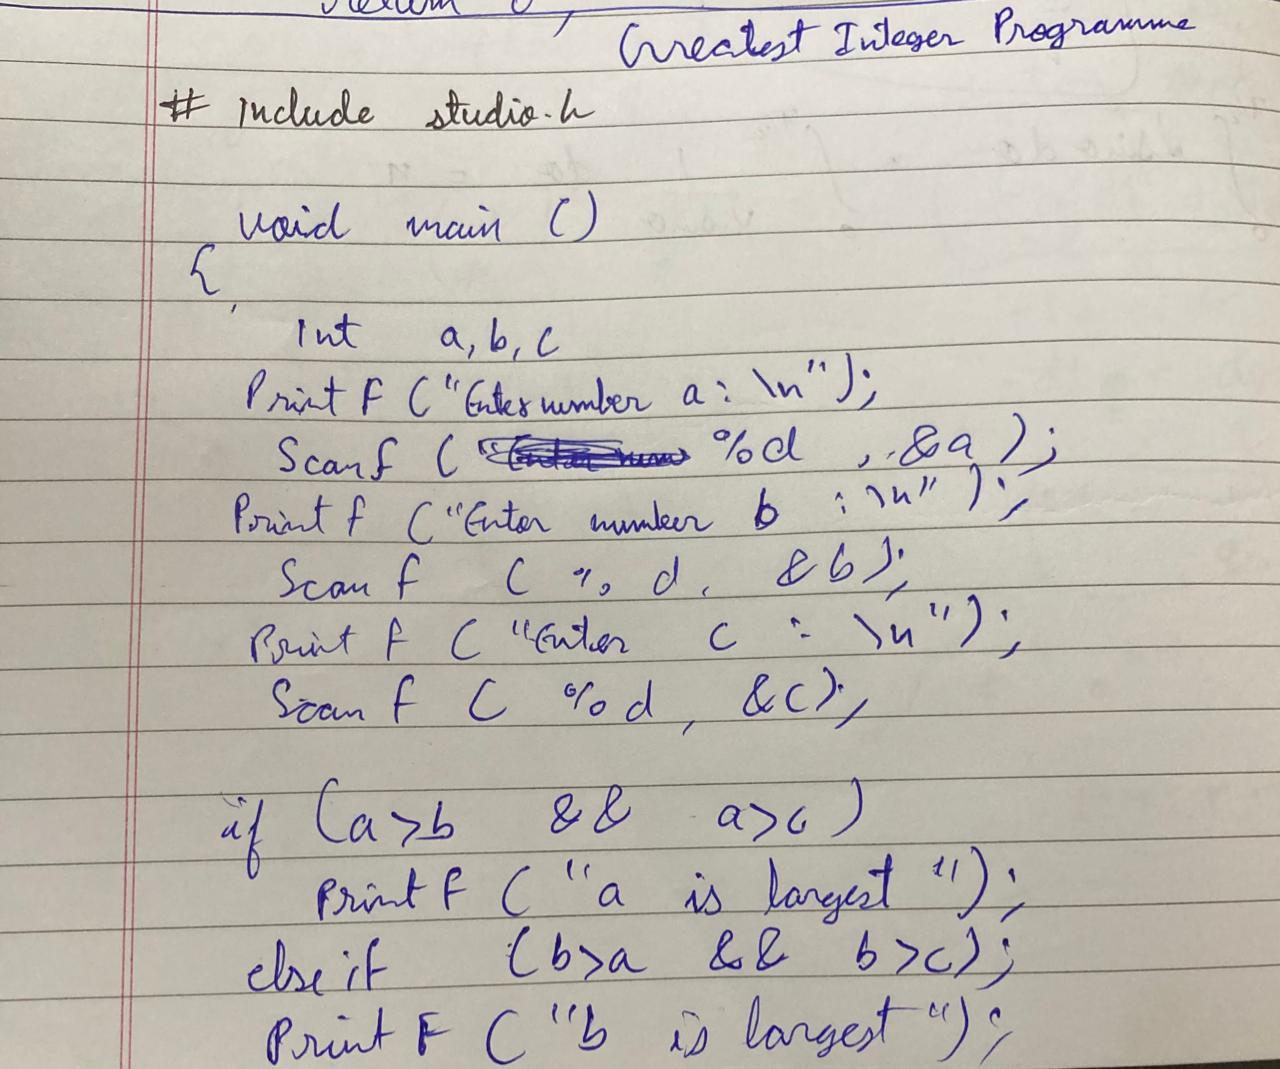 Return 0;
Greatest Integer Programme
# include studio.h
void main ()
{
Int a, b, c
Print F ("Enter number a : \n");
Scanf (" %d , &a );
Print f ("Enter number b : \n" );
Scan f ( % d, &b);
Print f ( "Enter c : \n");
Scan f ( %d, &c);
if (a>b && a>c )
Print F ( "a is largest ");
else if (b>a && b>c);
Print F ( "b is largest ");